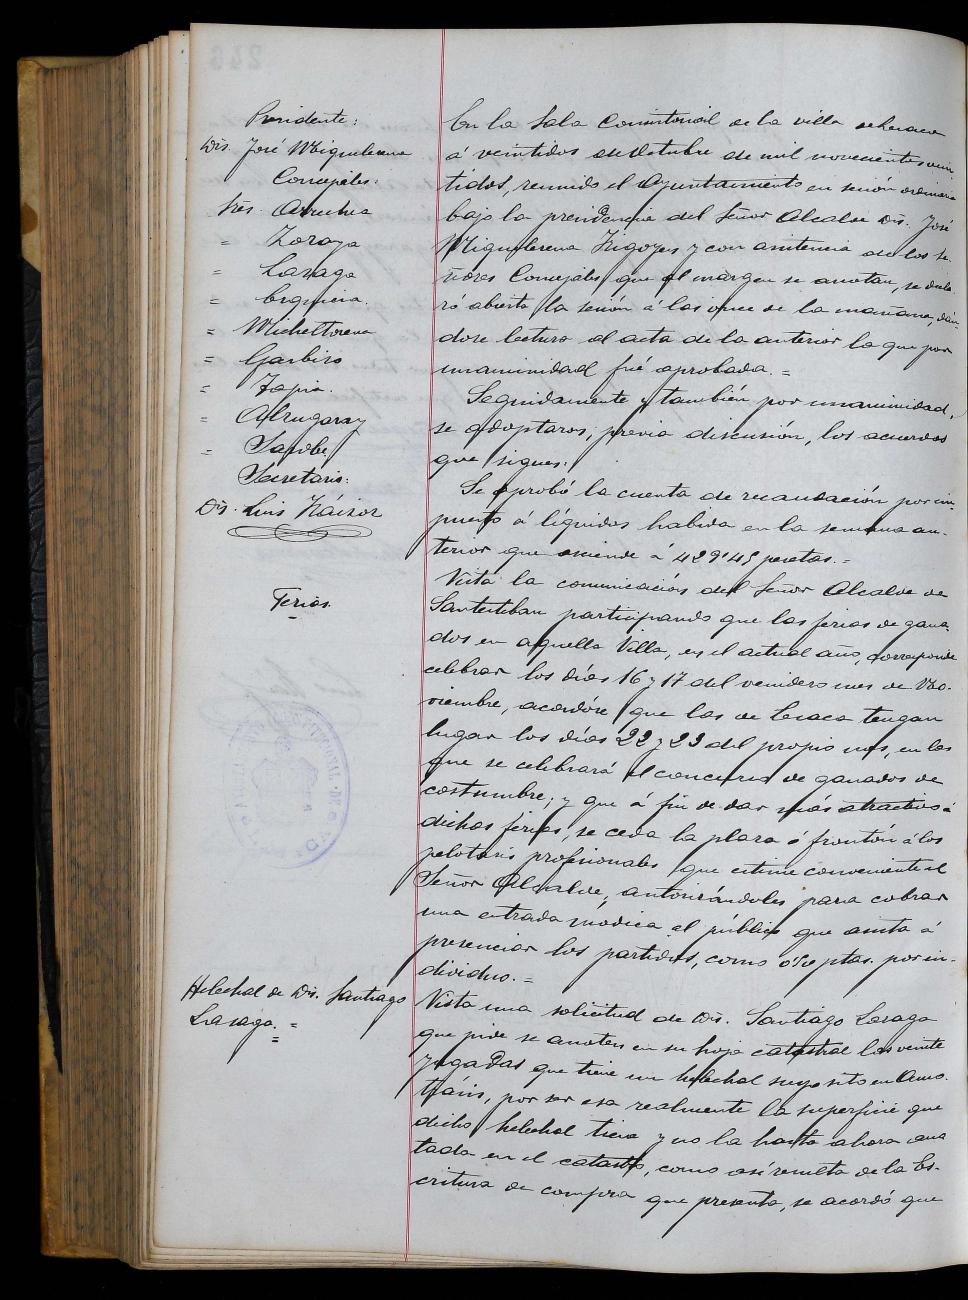 Presidente:
Dn. José Miguelerena
Concejales:
Sres. Arrechea
" Zoraya
" Lasaga
" Errguicia.
" Micheltorena
" Garbiso
" Tapia.
" Alzugaray
" Sarobe
Secretario:
Dn. Luis
En la Sala Consistorial de la villa de Lesaca
á veintidos de Octubre de mil novecientos vein
tidos, reunido el Ayuntamiento en sesión ordinaria
bajo la presidencia del Señor Alcalde Dn. José
Miguelerena Yrigoyen y con asistencia de los Se-
ñores Concejales que al margen se anotan, se decla-
ró abierta la sesión á las once de la mañana, dán-
dose lectura al acta de la anterior la que por
unanimidad fué aprobada. =
Seguidamente y también por unanimidad,
se adoptaron, previa discusión, los acuerdos
que siguen:
Se aprobó la cuenta de recaudación por im-
puesto á líquidos habida en la semana an-
terior que asciende á 429'45 pesetas. =
Ferias.
Vista la comunicación del Señor Alcalde de
Santesteban participando que las ferias de gana-
dos en aquella Villa, en el actual año, corresponde
celebrar los días 16 y 17 del venidero mes de No-
viembre, acordóse que las de Lesaca tengan
lugar los días 22 y 23 del propio mes, en los
que se celebrará el concurso de ganados de
costumbre; y que á fin de dar más atractivo á
dichas ferias, se ceda la plaza ó frontón á los
pelotaris profesionales que estime conveniente el
Señor Alcalde, autorizándoles para cobrar
una entrada módica al público que asista á
presenciar los partidos, como 0'50 ptas. por in-
dividuo. =
Helechal de Dn. Santiago
Lasaga. =
Vista una solicitud de Dn. Santiago Lasaga
que pide se anoten en su hoja catastral las veinte
yugadas que tiene un helechal suyo sito en
por ser esa realmente la superficie que
dicho helechal tiene y no la hasta ahora ano
tada en el catastro, como así resulta de la Es-
critura de compra que presenta, se acordó que